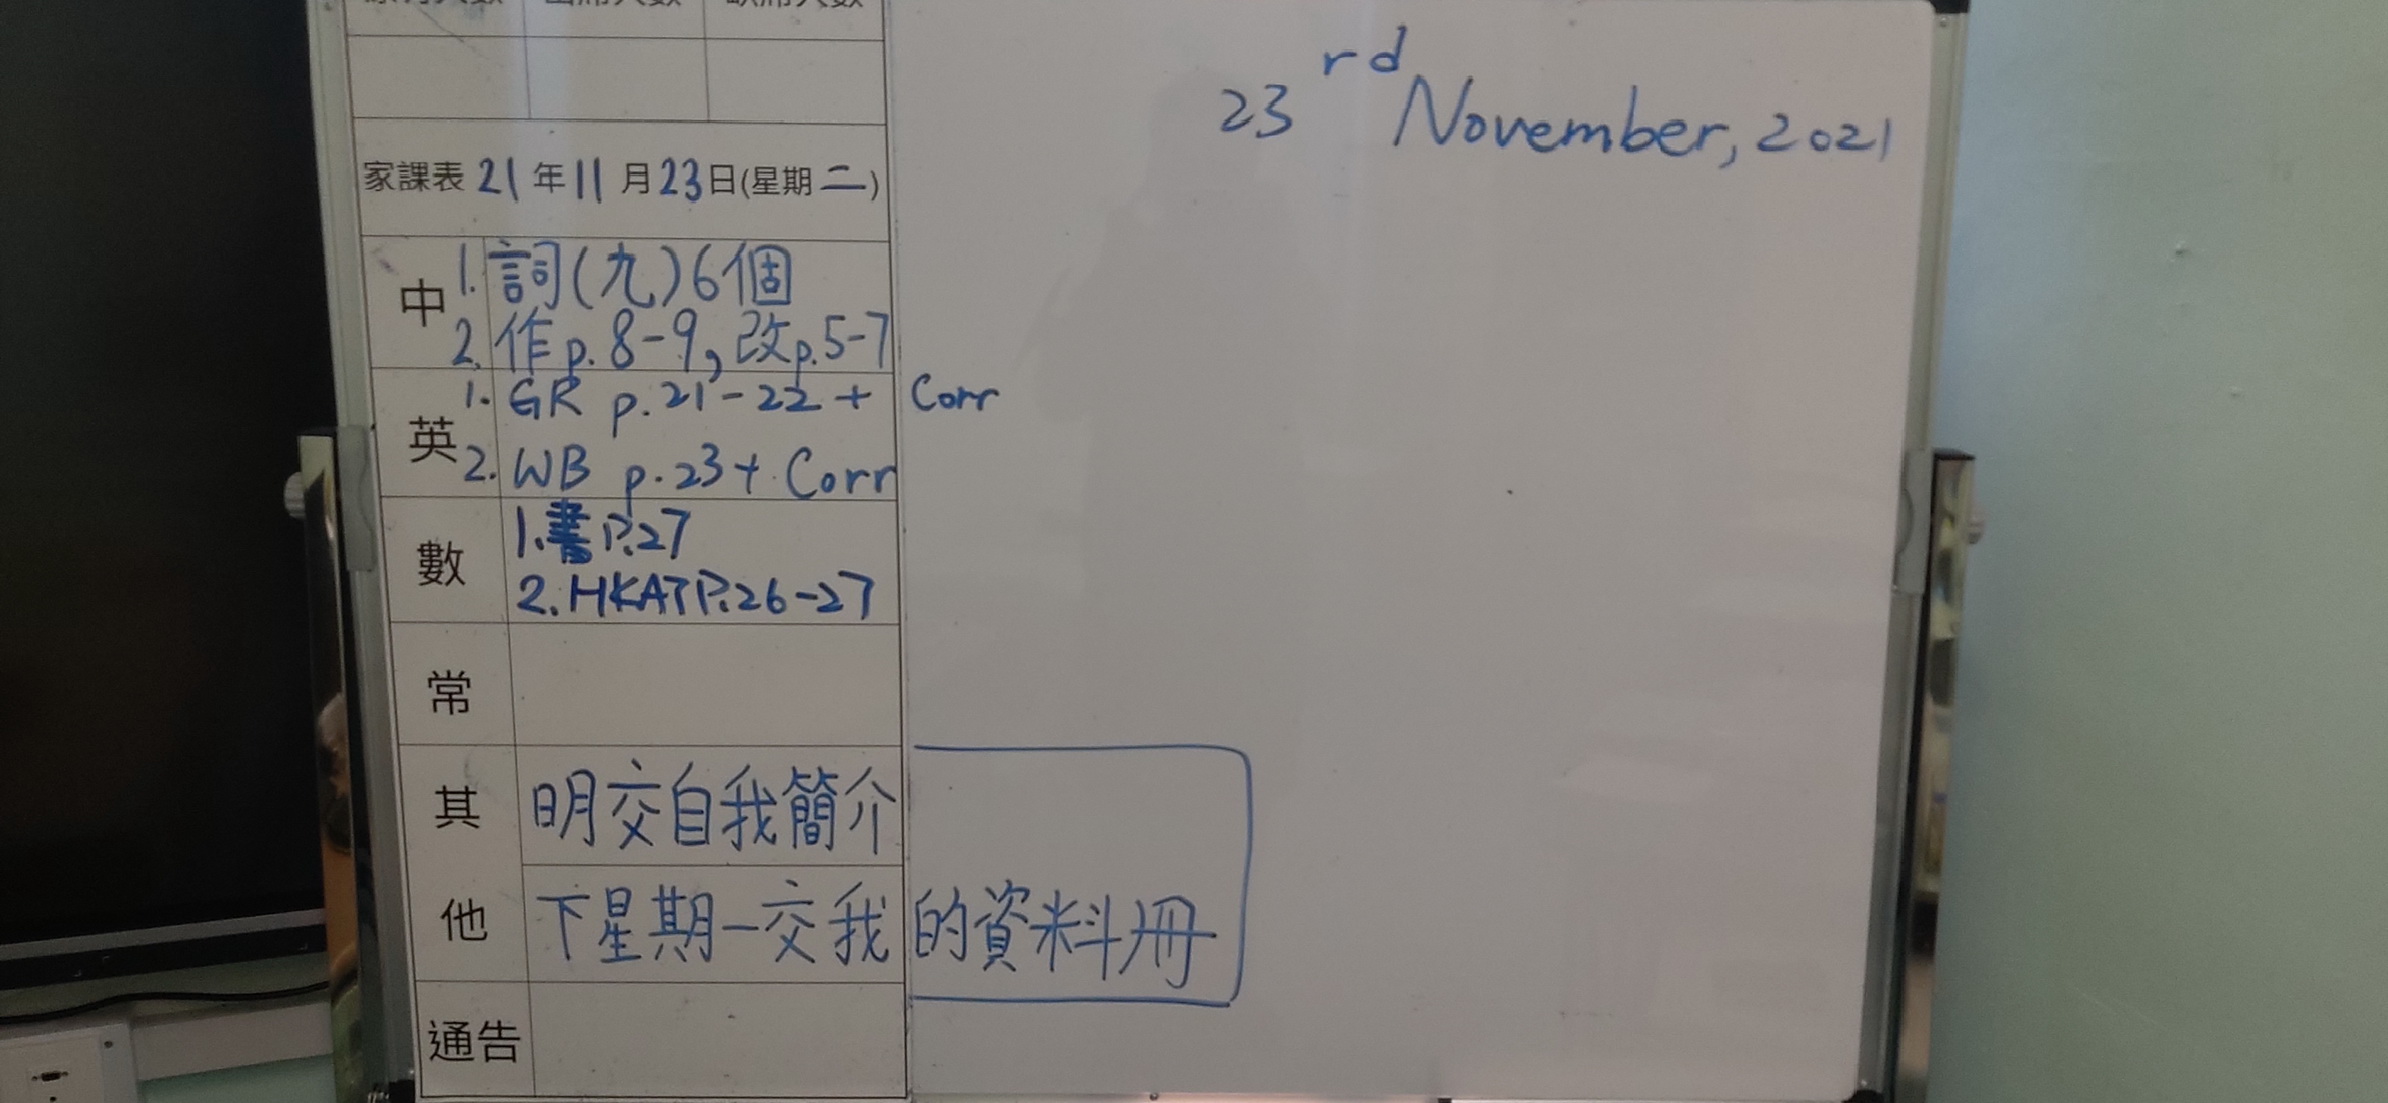 23rd November, 2021
家課表 21年11月23日(星期二)
中
1. 詞(九)6個
2. 作p.8-9, 改p.5-7
英
1. GR p.21-22 + Corr
2. WB p.23 + Corr
數
1. 書P.27
2. HKAT P.26-27
常
其他
明交自我簡介
下星期一交我的資料冊
通告